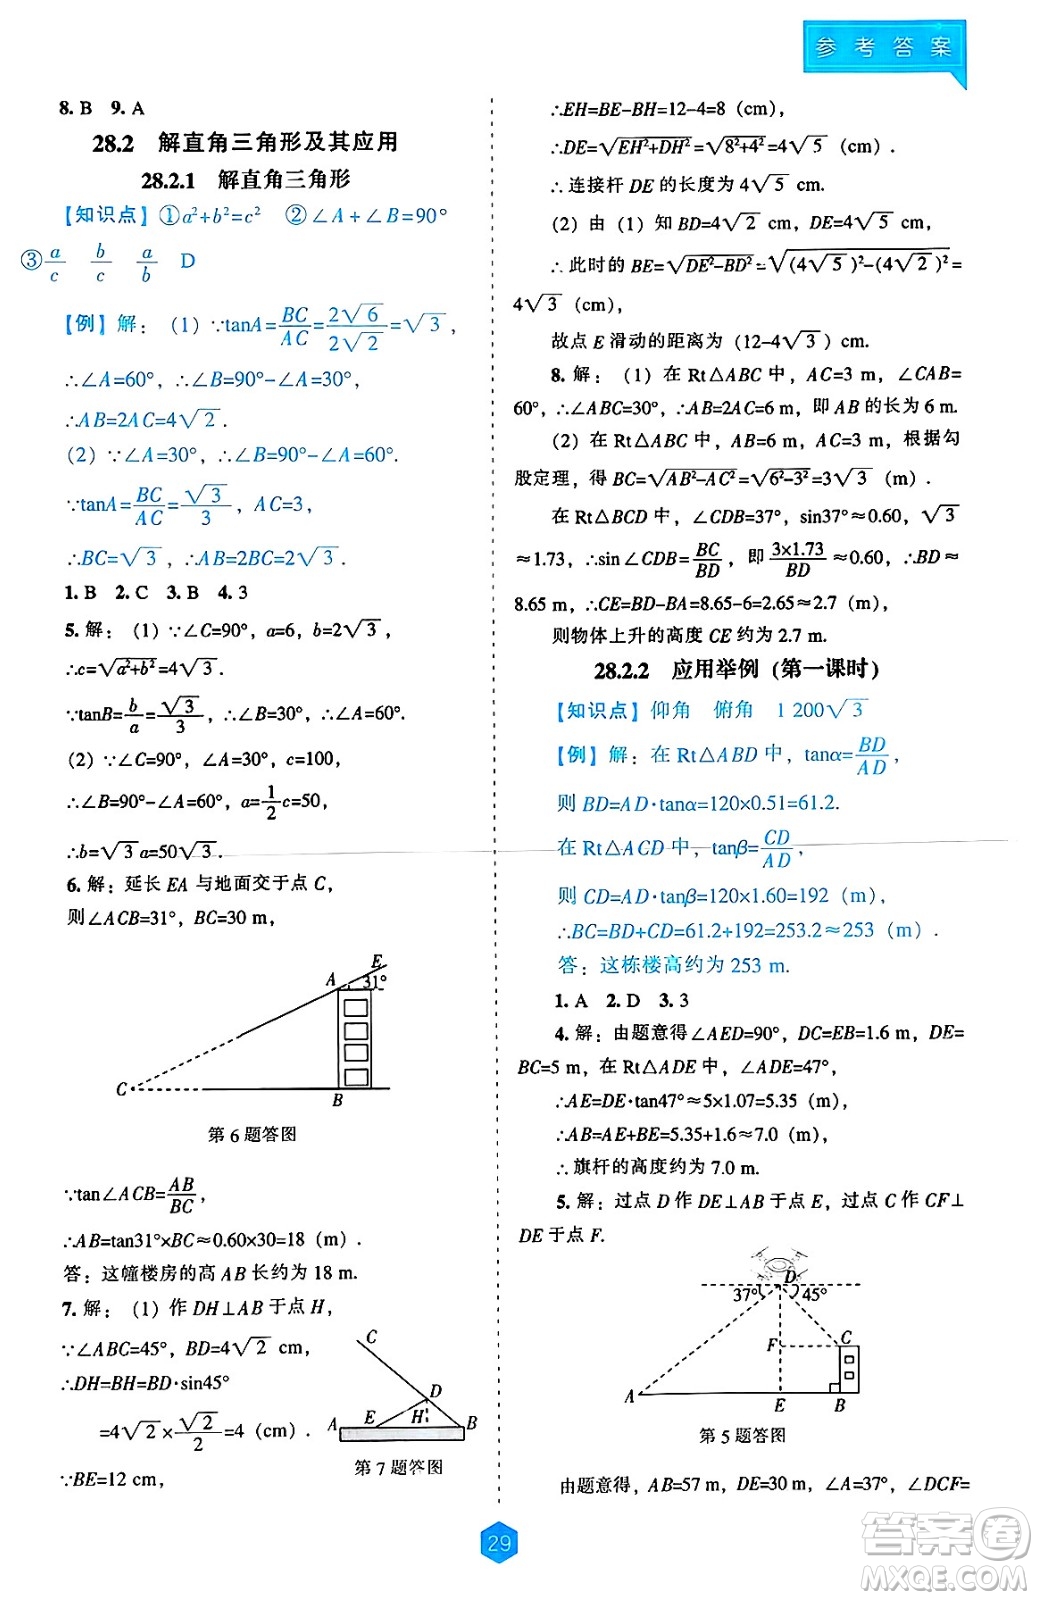 参考答案
8. B  9. A
28.2  解直角三角形及其应用
28.2.1  解直角三角形
【知识点】①a²+b²=c²  ②∠A+∠B=90°
③a/c  b/c  a/b  D
【例】解：(1) ∵tanA=BC/AC=2√6/2√2=√3，
∴∠A=60°，∴∠B=90°-∠A=30°，
∴AB=2AC=4√2.
(2) ∵∠A=30°，∴∠B=90°-∠A=60°.
∵tanA=BC/AC=√3/3，AC=3，
∴BC=√3，∴AB=2BC=2√3.
1. B  2. C  3. B  4. 3
5. 解：(1) ∵∠C=90°，a=6，b=2√3，
∴c=√(a²+b²)=4√3.
∵tanB=b/a=√3/3，∴∠B=30°，∴∠A=60°.
(2) ∵∠C=90°，∠A=30°，c=100，
∴∠B=90°-∠A=60°，a=1/2c=50，
∴b=√3a=50√3.
6. 解：延长 EA 与地面交于点 C，
则∠ACB=31°，BC=30 m，
E
A
31°
C
B
第 6 题答图
∵tan∠ACB=AB/BC，
∴AB=tan31°×BC≈0.60×30=18（m）.
答：这幢楼房的高 AB 长约为 18 m.
7. 解：(1) 作 DH⊥AB 于点 H，
∵∠ABC=45°，BD=4√2 cm，
∴DH=BH=BD·sin45°
=4√2×√2/2=4（cm）.
∵BE=12 cm，
C
D
A E H B
第 7 题答图
∴EH=BE-BH=12-4=8（cm），
∴DE=√(EH²+DH²)=√(8²+4²)=4√5（cm）.
∴连接杆 DE 的长度为 4√5 cm.
(2) 由 (1) 知 BD=4√2 cm，DE=4√5 cm，
∴此时的 BE=√(DE²-BD²)=√((4√5)²-(4√2)²)=
4√3（cm），
故点 E 滑动的距离为（12-4√3）cm.
8. 解：(1) 在 Rt△ABC 中，AC=3 m，∠CAB=
60°，∴∠ABC=30°，∴AB=2AC=6 m，即 AB 的长为 6 m.
(2) 在 Rt△ABC 中，AB=6 m，AC=3 m，根据勾
股定理，得 BC=√(AB²-AC²)=√(6²-3²)=3√3（m）.
在 Rt△BCD 中，∠CDB=37°，sin37°≈0.60，√3
≈1.73，∴sin∠CDB=BC/BD，即 3×1.73/BD≈0.60，∴BD≈
8.65 m，∴CE=BD-BA=8.65-6=2.65≈2.7（m），
则物体上升的高度 CE 约为 2.7 m.
28.2.2  应用举例（第一课时）
【知识点】仰角  俯角  1 200√3
【例】解：在 Rt△ABD 中，tanα=BD/AD，
则 BD=AD·tanα=120×0.51=61.2.
在 Rt△ACD 中，tanβ=CD/AD，
则 CD=AD·tanβ=120×1.60=192（m），
∴BC=BD+CD=61.2+192=253.2≈253（m）.
答：这栋楼高约为 253 m.
1. A  2. D  3. 3
4. 解：由题意得∠AED=90°，DC=EB=1.6 m，DE=
BC=5 m，在 Rt△ADE 中，∠ADE=47°，
∴AE=DE·tan47°≈5×1.07=5.35（m），
∴AB=AE+BE=5.35+1.6≈7.0（m），
∴旗杆的高度约为 7.0 m.
5. 解：过点 D 作 DE⊥AB 于点 E，过点 C 作 CF⊥
DE 于点 F.
D
37° 45°
F C
A
E B
第 5 题答图
由题意得，AB=57 m，DE=30 m，∠A=37°，∠DCF=
29
答案圈
MXQE.COM